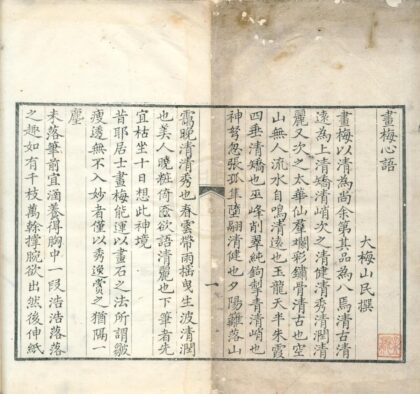 畫梅心語
大梅山民撰
畫梅以清為尚余第其品為八焉清古清
遠為上清矯清峭次之清健清秀清潤清
麗又次之太華仙彩骨清古也空
山無人流水自鳴清遠也玉龍天半朱霞
四垂清矯也巫峰削翠純鉤掣青清峭也
神弩忽張孤隼墮翮清健也夕陽籬落山
一
靄晚清清秀也春雲帶雨搖曳生波清潤
也美人曉粧倚奩欲語清麗也下筆者先
宜枯坐十日想此神境
昔耶居士畫梅能運以畫石之法所謂皺
瘦透無不入妙者僅以秀逸賞之猶隔一
塵
未落筆前宜涵養得胸中一段浩浩落落
之趣如有千枝萬榦撐腕欲出然後伸紙